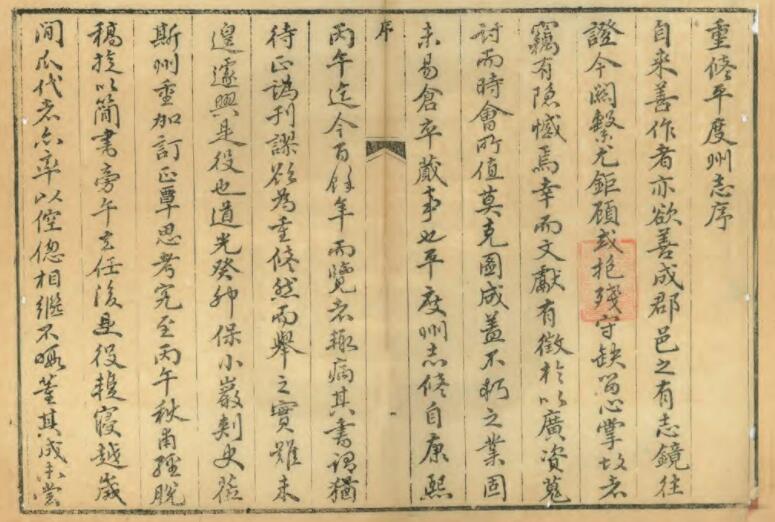 重修平度州志序
自來善作者亦欲善成郡邑之有志鏡往
證今關繫尤鉅顧或抱殘守缺留心掌故者
竊有隱憾焉幸而文獻有徵於以廣資蒐
討而時會所值莫克圖成蓋不朽之業固
未易倉卒蕆事也平度州志修自康熙
序
丙午迄今百餘年而覽者輒病其書謂猶
待正譌刊謬欲為重修然而舉之實難未
遑遽興是役也道光癸卯保小巖刺史蒞
斯州重加訂正覃思考究至丙午秋甫經脫
稿旋以簡書旁午去任後是役輟寢越歲
間瓜代者亦率以倥傯相繼不暇董其成未嘗